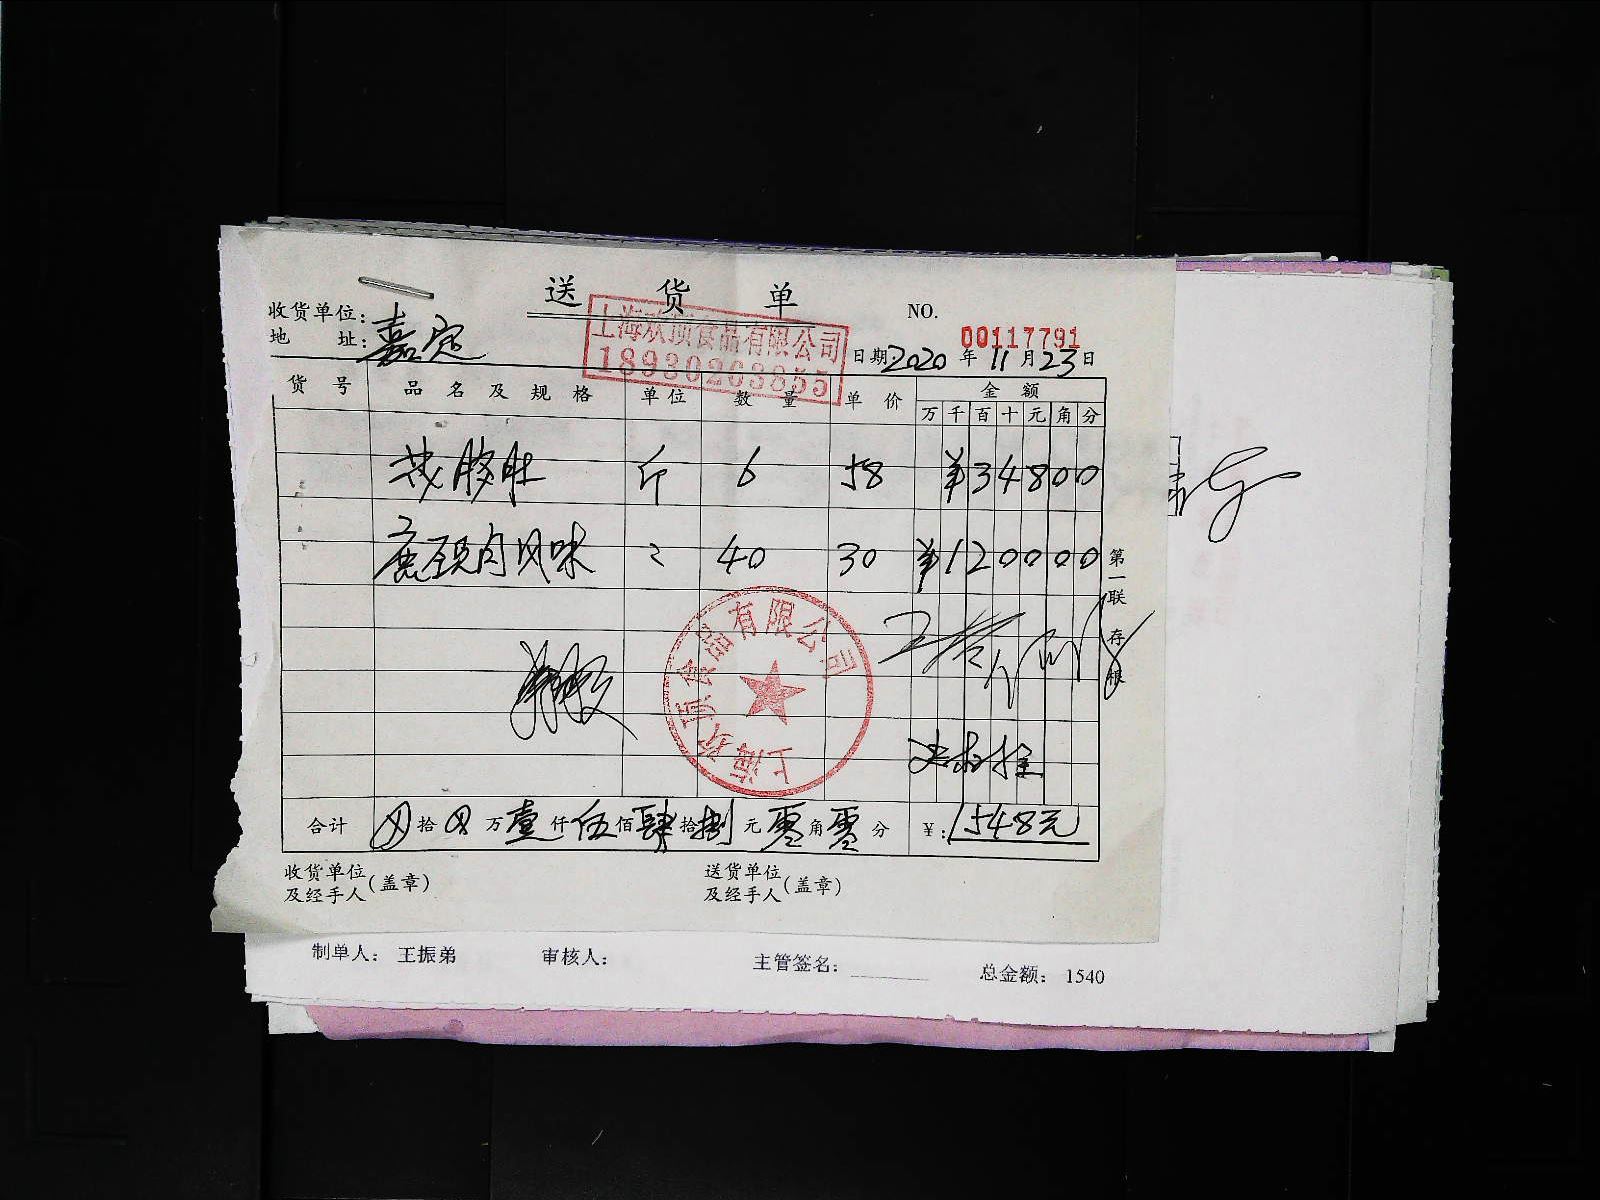 送 货 单
NO. 00117791
收货单位:
地 址: 嘉定
上海欢顶食品有限公司
18930203855
日期 2020 年 11 月 23 日
货 号 品 名 及 规 格 单位 数 量 单 价 金 额
万 千 百 十 元 角 分
斤 6 58 ¥34800
肉风味 〃 40 30 ¥120000
第一联 存根
食品有限公司
上海
合计 拾 万 壹 仟 伍 佰 肆 拾 捌 元 零 角 零 分 ¥: 1548元
收货单位
及经手人(盖章)
送货单位
及经手人(盖章)
制单人: 王振弟 审核人: 主管签名: 总金额: 1540